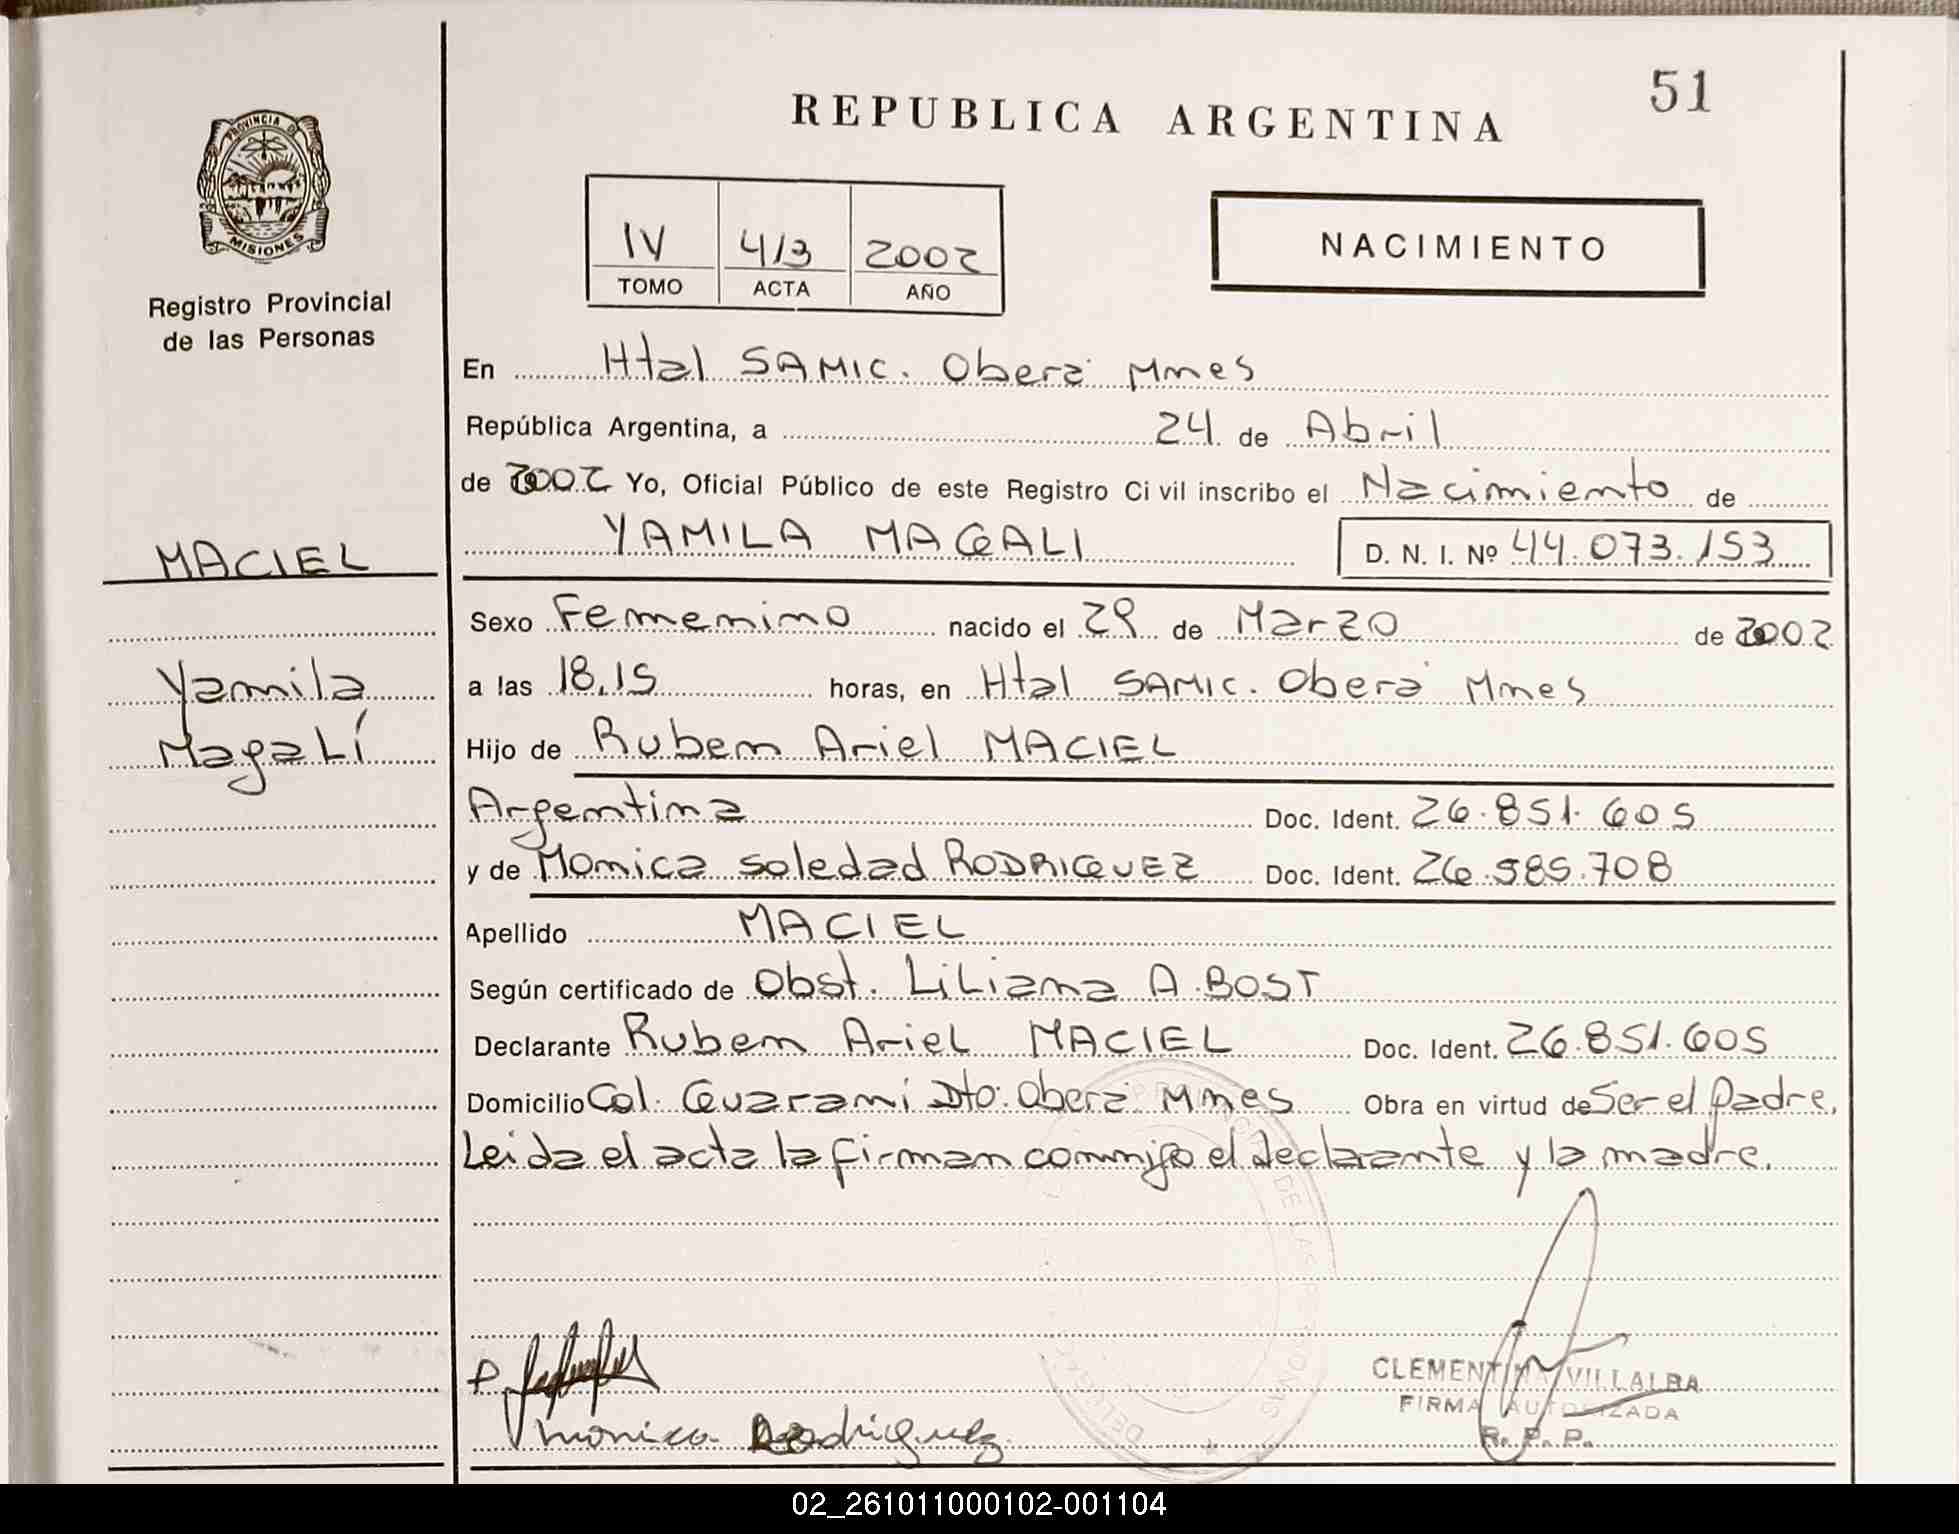 51
REPUBLICA ARGENTINA
PROVINCIA DE
MISIONES
Registro Provincial
de las Personas
IV 413 2002
TOMO ACTA AÑO
NACIMIENTO
En Htal SAMIC. Oberá Mnes
República Argentina, a 24 de Abril
de 2002 Yo, Oficial Público de este Registro Civil inscribo el Nacimiento de
YAMILA MAGALI D. N. I. Nº 44.073.153
MACIEL
Yamila
Magalí
Sexo Femenino nacido el 29 de Marzo de 2002
a las 18,15 horas, en Htal SAMIC. Oberá Mnes
Hijo de Ruben Ariel MACIEL
Argentina Doc. Ident. 26.851.605
y de Monica Soledad RODRIGUEZ Doc. Ident. 26.585.708
Apellido MACIEL
Según certificado de Obst. Liliana A. BOST
Declarante Ruben Ariel MACIEL Doc. Ident. 26.851.605
Domicilio Col. Guarani Dto. Oberá Mnes Obra en virtud de Ser el padre.
Leida el acta la firman conmigo el declarante y la madre.
DE LAS PERSONAS
P.
Monica Rodriguez
CLEMENTINA VILLALBA
FIRMA AUTORIZADA
R. P. P.
02_261011000102-001104